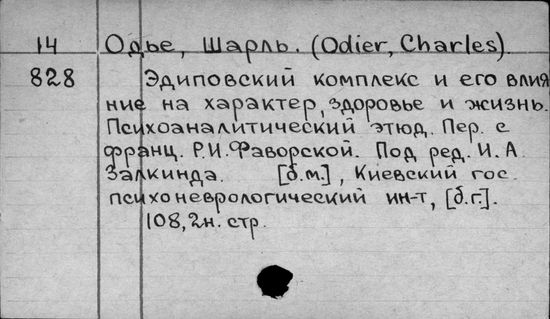 14 Одье, Шарль. (Odier, Charles).
828 Эдиповский комплекс и его влия
ние на характер, здоровье и жизнь.
Психоаналитический этюд. Пер. с
франц. Р.И.Фаворской. Под ред. И.А.
Залкинда. [б.м.], Киевский гос.
психоневрологический ин-т, [б.г.].
108,2н. стр.